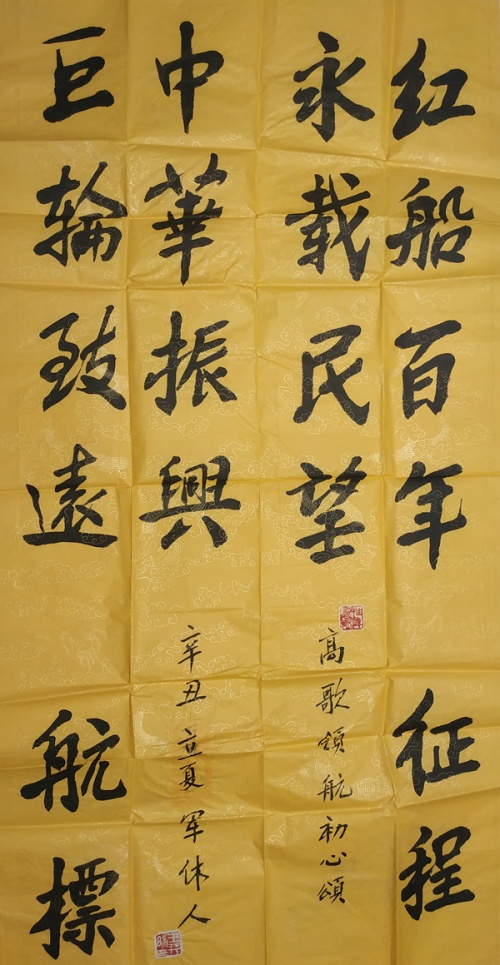 红船百年征程
永載民望
高歌領航初心頌
中華振興
辛丑立夏军休人
巨輪致遠航標